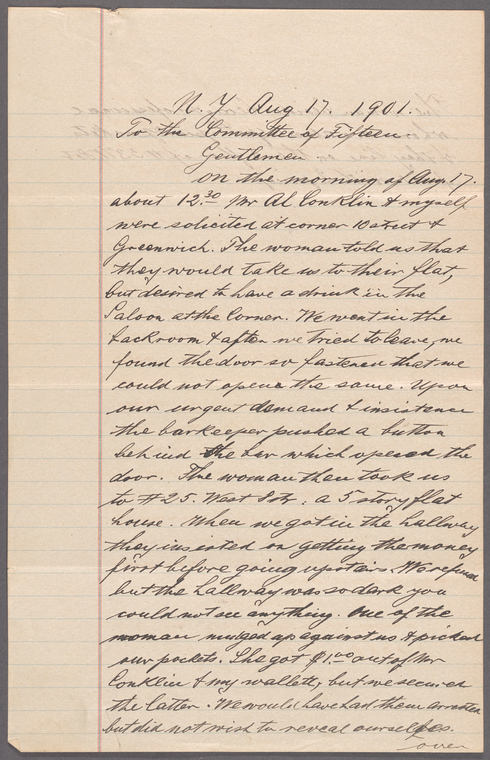 N. Y. Aug. 17. 1901.
To the Committee of Fifteen.
Gentlemen
On the morning of Aug. 17.
about 12.30 Mr Al Conklin & myself
were solicited at corner 10 street &
Greenwich. The woman told us that
they would take us to their flat,
but desired to have a drink in the
Saloon at the Corner. We went in the
backroom & after we tried to leave, we
found the door so fastened that we
could not opene the same. Upon
our urgent demand & insistence
the barkeeper pushed a button
behind the bar which opened the
door. The woman then took us
to #25. West 8 Str. a 5 story flat
house. When we got in the hallway
they insisted on getting the money
first before going upstairs. We refused
but the hallway was so dark you
could not see anything. One of the
woman mudged up against us & picked
our pockets. She got $1.00 out of Mr
Conklin & my wallett, but we secured
the latter. We would have had them arrested
but did not wish to reveal ourselfes.
over